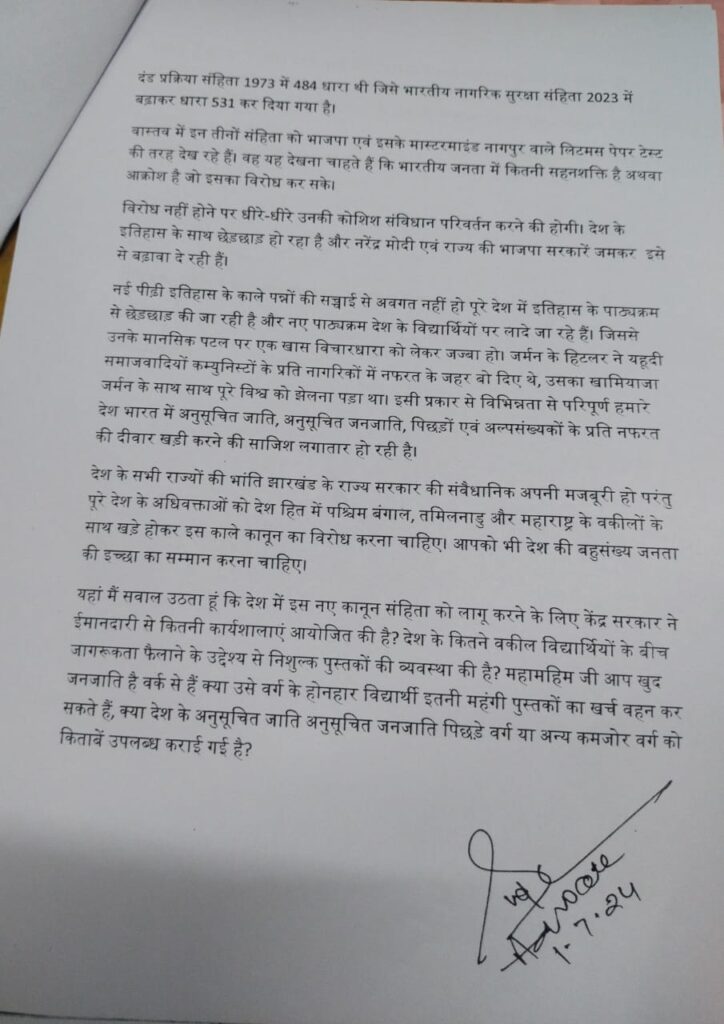 दंड प्रक्रिया संहिता 1973 में 484 धारा थी जिसे भारतीय नागरिक सुरक्षा संहिता 2023 में
बढ़ाकर धारा 531 कर दिया गया है।
वास्तव में इन तीनों संहिता को भाजपा एवं इसके मास्टरमाइंड नागपुर वाले लिटमस पेपर टेस्ट
की तरह देख रहे हैं। वह यह देखना चाहते हैं कि भारतीय जनता में कितनी सहनशक्ति है अथवा
आक्रोश है जो इसका विरोध कर सके।
विरोध नहीं होने पर धीरे-धीरे उनकी कोशिश संविधान परिवर्तन करने की होगी। देश के
इतिहास के साथ छेड़छाड़ हो रहा है और नरेंद्र मोदी एवं राज्य की भाजपा सरकारें जमकर इसे
से बढ़ावा दे रही हैं।
नई पीढ़ी इतिहास के काले पन्नों की सच्चाई से अवगत नहीं हो पूरे देश में इतिहास के पाठ्यक्रम
से छेड़छाड़ की जा रही है और नए पाठ्यक्रम देश के विद्यार्थियों पर लादे जा रहे हैं। जिससे
उनके मानसिक पटल पर एक खास विचारधारा को लेकर जज्बा हो। जर्मन के हिटलर ने यहूदी
समाजवादियों कम्युनिस्टों के प्रति नागरिकों में नफरत के जहर बो दिए थे, उसका खामियाजा
जर्मन के साथ साथ पूरे विश्व को झेलना पड़ा था। इसी प्रकार से विभिन्नता से परिपूर्ण हमारे
देश भारत में अनुसूचित जाति, अनुसूचित जनजाति, पिछड़ों एवं अल्पसंख्यकों के प्रति नफरत
की दीवार खड़ी करने की साजिश लगातार हो रही है।
देश के सभी राज्यों की भांति झारखंड के राज्य सरकार की संवैधानिक अपनी मजबूरी हो परंतु
पूरे देश के अधिवक्ताओं को देश हित में पश्चिम बंगाल, तमिलनाडु और महाराष्ट्र के वकीलों के
साथ खड़े होकर इस काले कानून का विरोध करना चाहिए। आपको भी देश की बहुसंख्य जनता
की इच्छा का सम्मान करना चाहिए।
यहां मैं सवाल उठता हूं कि देश में इस नए कानून संहिता को लागू करने के लिए केंद्र सरकार ने
ईमानदारी से कितनी कार्यशालाएं आयोजित की है? देश के कितने वकील विद्यार्थियों के बीच
जागरूकता फैलाने के उद्देश्य से निशुल्क पुस्तकों की व्यवस्था की है? महामहिम जी आप खुद
जनजाति है वर्क से हैं क्या उसे वर्ग के होनहार विद्यार्थी इतनी महंगी पुस्तकों का खर्च वहन कर
सकते हैं, क्या देश के अनुसूचित जाति अनुसूचित जनजाति पिछड़े वर्ग या अन्य कमजोर वर्ग को
किताबें उपलब्ध कराई गई है?
Advocate
1.7.24